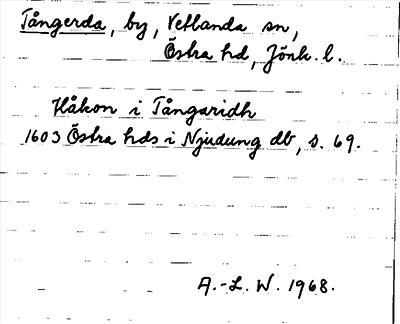 Tångerda, by, Vetlanda sn,
Östra hd, Jönk. l.
Håkon i Tångaridh
1603 Östra hds i Njudung db, s. 69.
A.-L. W. 1968.